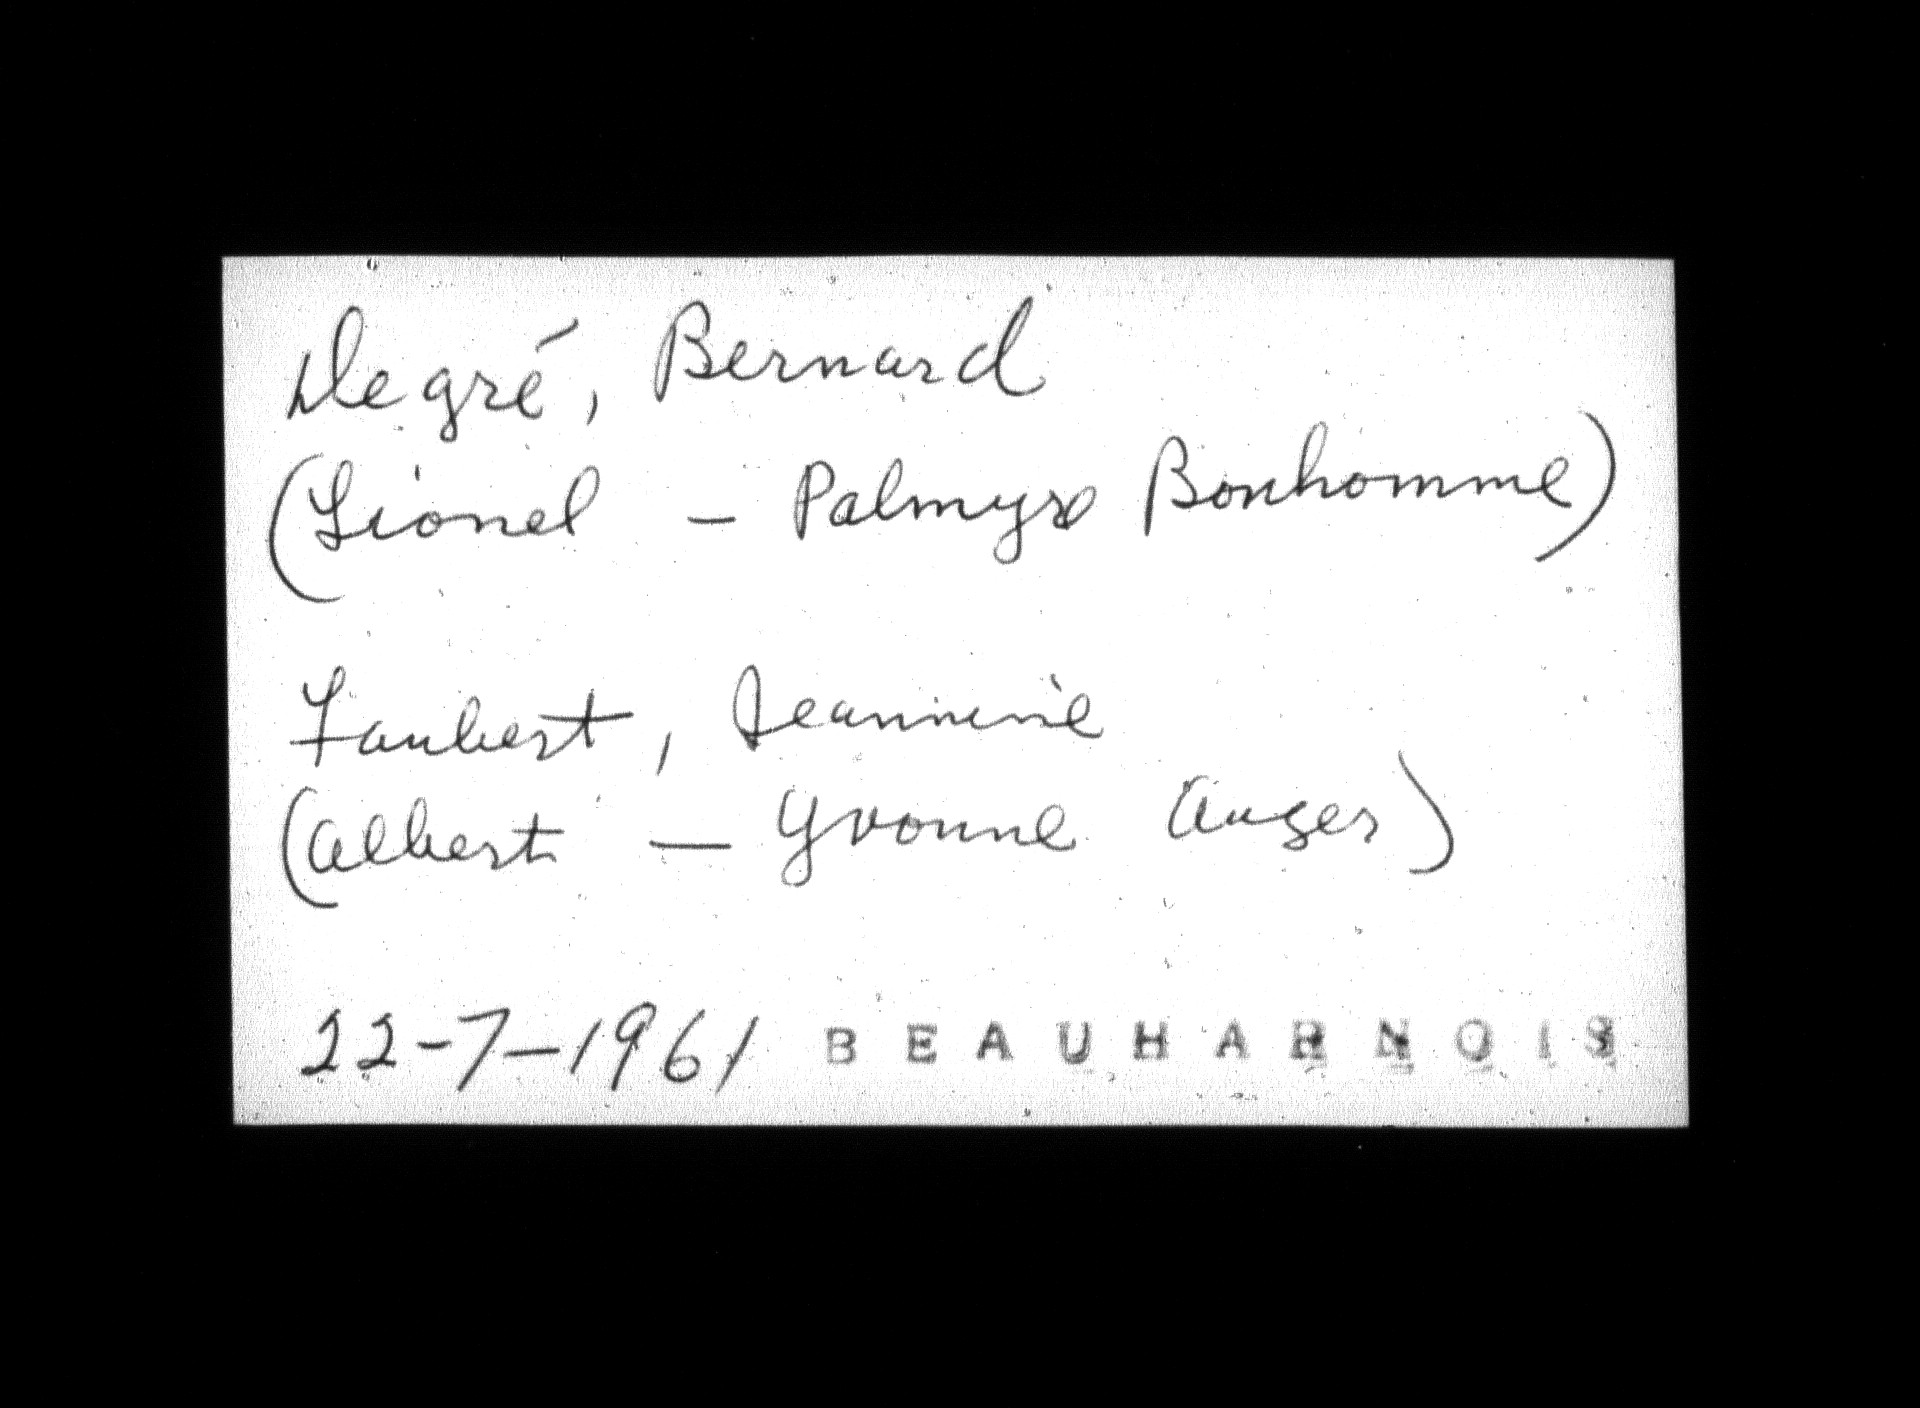 Degré, Bernard
(Lionel - Palmyre Bonhomme)
Faubert, Jeannine
(Albert — Yvonne Auger)
22-7-1961 BEAUHARNOIS